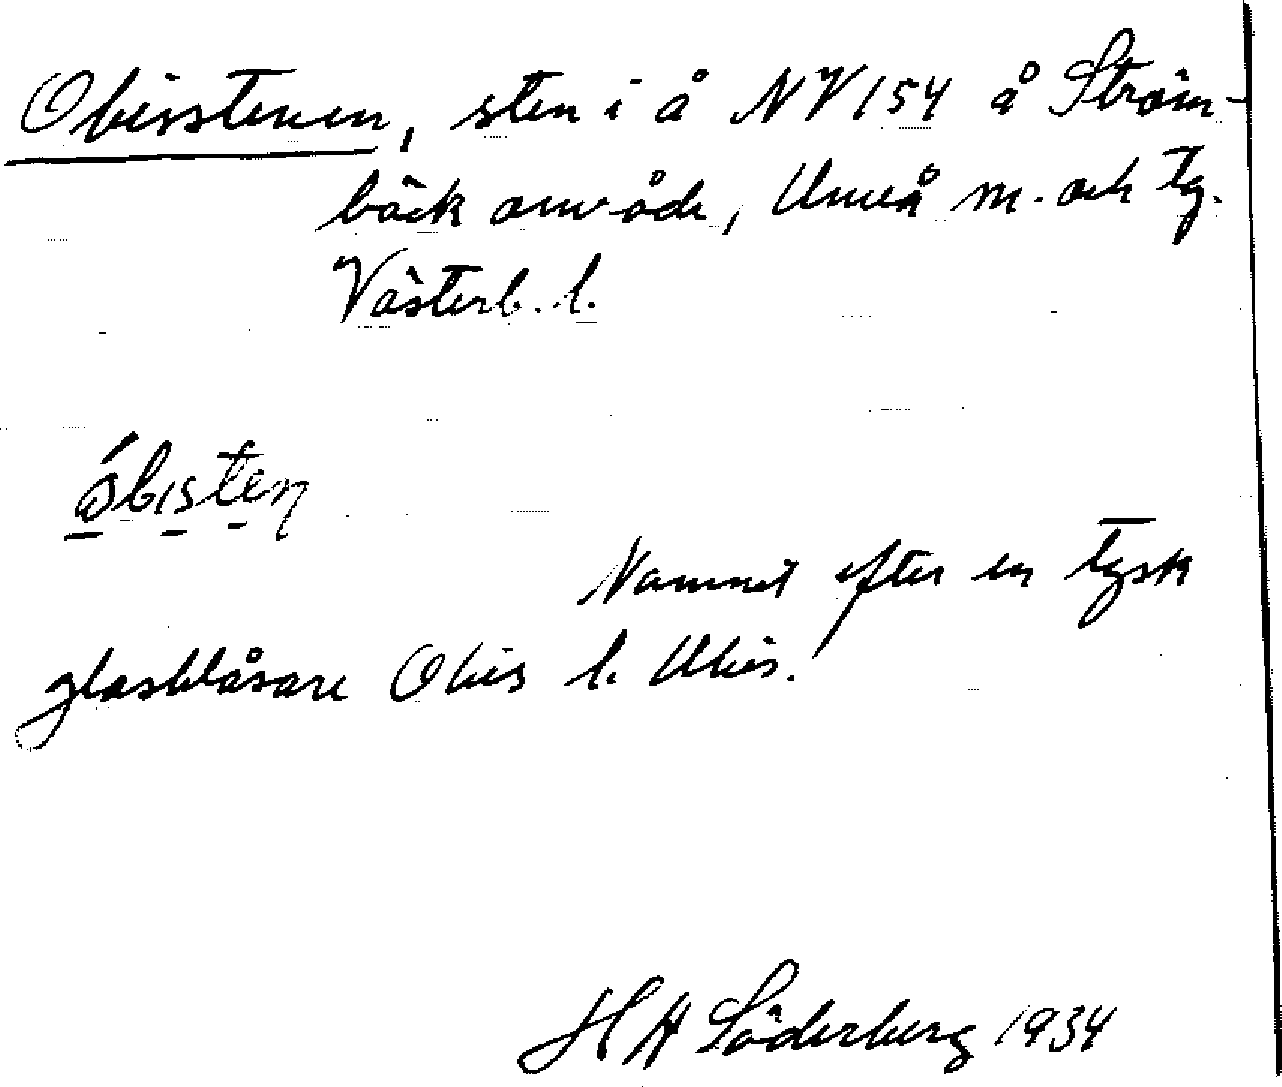 Obisstenen, sten i å NV 154 å Ström-
bäck område, Umeå m. och tg.
Västerb. l.
Namnet efter en tysk
glasblåsare Obis l. Ubis.
H A Söderberg 1934